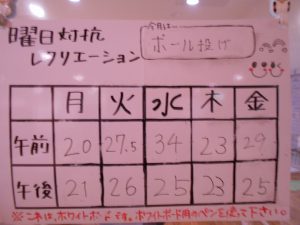 曜日対抗
レクリエーション
今月は…
ボール投げ
月 火 水 木 金
午前 20 27.5 34 23 29
午後 21 26 25 23 25
※これは、ホワイトボードです。ホワイトボード用のペンを使って下さい。